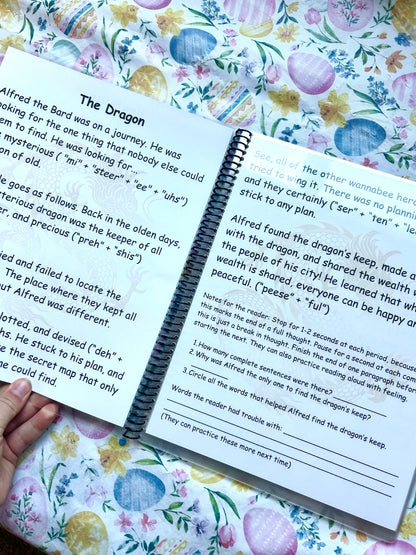 The Dragon
Alfred the Bard was on a journey. He was
ooking for the one thing that nobody else could
em to find. He was looking for...
mysterious ( "mi" + "steer" + "ee" + "uhs")
on of old.
le goes as follows. Back in the olden days,
sterious dragon was the keeper of all
er, and precious ("preh" + "shis")
ied and failed to locate the
The place where they kept all
ut Alfred was different.
lotted, and devised ("deh" +
hs. He stuck to his plan, and
e the secret map that only
e could find.
See, all of the other wannabee hero
tried to wing it. There was no planni
and they certainly ("ser" + "ten" + "lee
stick to any plan.
Alfred found the dragon's keep, made a
with the dragon, and shared the wealth w
the people of his city! He learned that wh
wealth is shared, everyone can be happy a
peaceful. ("peese" + "ful")
Notes for the reader: Stop for 1-2 seconds at each period, because
this marks the end of a full thought. Pause for a second at each com
this is just a break in thought. Finish the end of one paragraph before
starting the next. They can also practice reading aloud with feeling.
1. How many complete sentences were there?
2. Why was Alfred the only one to find the dragon's keep?
3. Circle all the words that helped Alfred find the dragon's keep.
Words the reader had trouble with:
(They can practice these more the
next time)